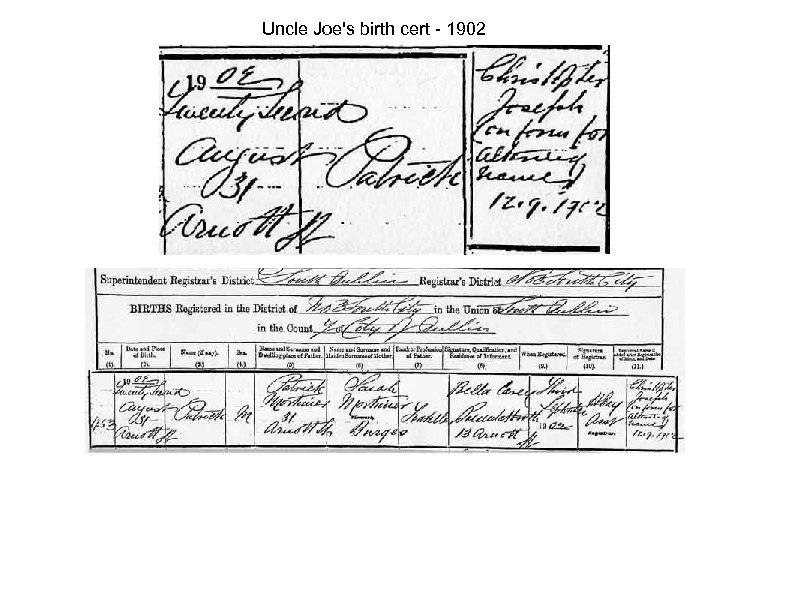 Uncle Joe's birth cert - 1902
19 02
Twenty Second
August
31
Arnott St
Patrick
Christopher
Joseph
on form for
altering
name
12.9.1902
Superintendent Registrar's District South Dublin Registrar's District No 3 South City
BIRTHS Registered in the District of No 3 South City in the Union of South Dublin
in the County City of Dublin
No. Date and Place of Birth. Name (if any). Sex. Name and Surname and Dwelling-place of Father. Name and Surname and Maiden Surname of Mother. Rank or Profession of Father. Signature, Qualification, and Residence of Informant. When Registered. Signature of Registrar.
(1). (2). (3.) (4.) (5) (6) (7.) (8) (9.) (10). (11.)
1902
Twenty Second
August
31
Arnott St
Patrick
M
Patrick
Mortimer
31
Arnott St
Sarah
Mortimer
Formerly
Burgess
Bella Carey
13 Arnott
St
Third
September
1902
Asst
Registrar.
Christopher
Joseph
on form for
altering
name
12.9.1902